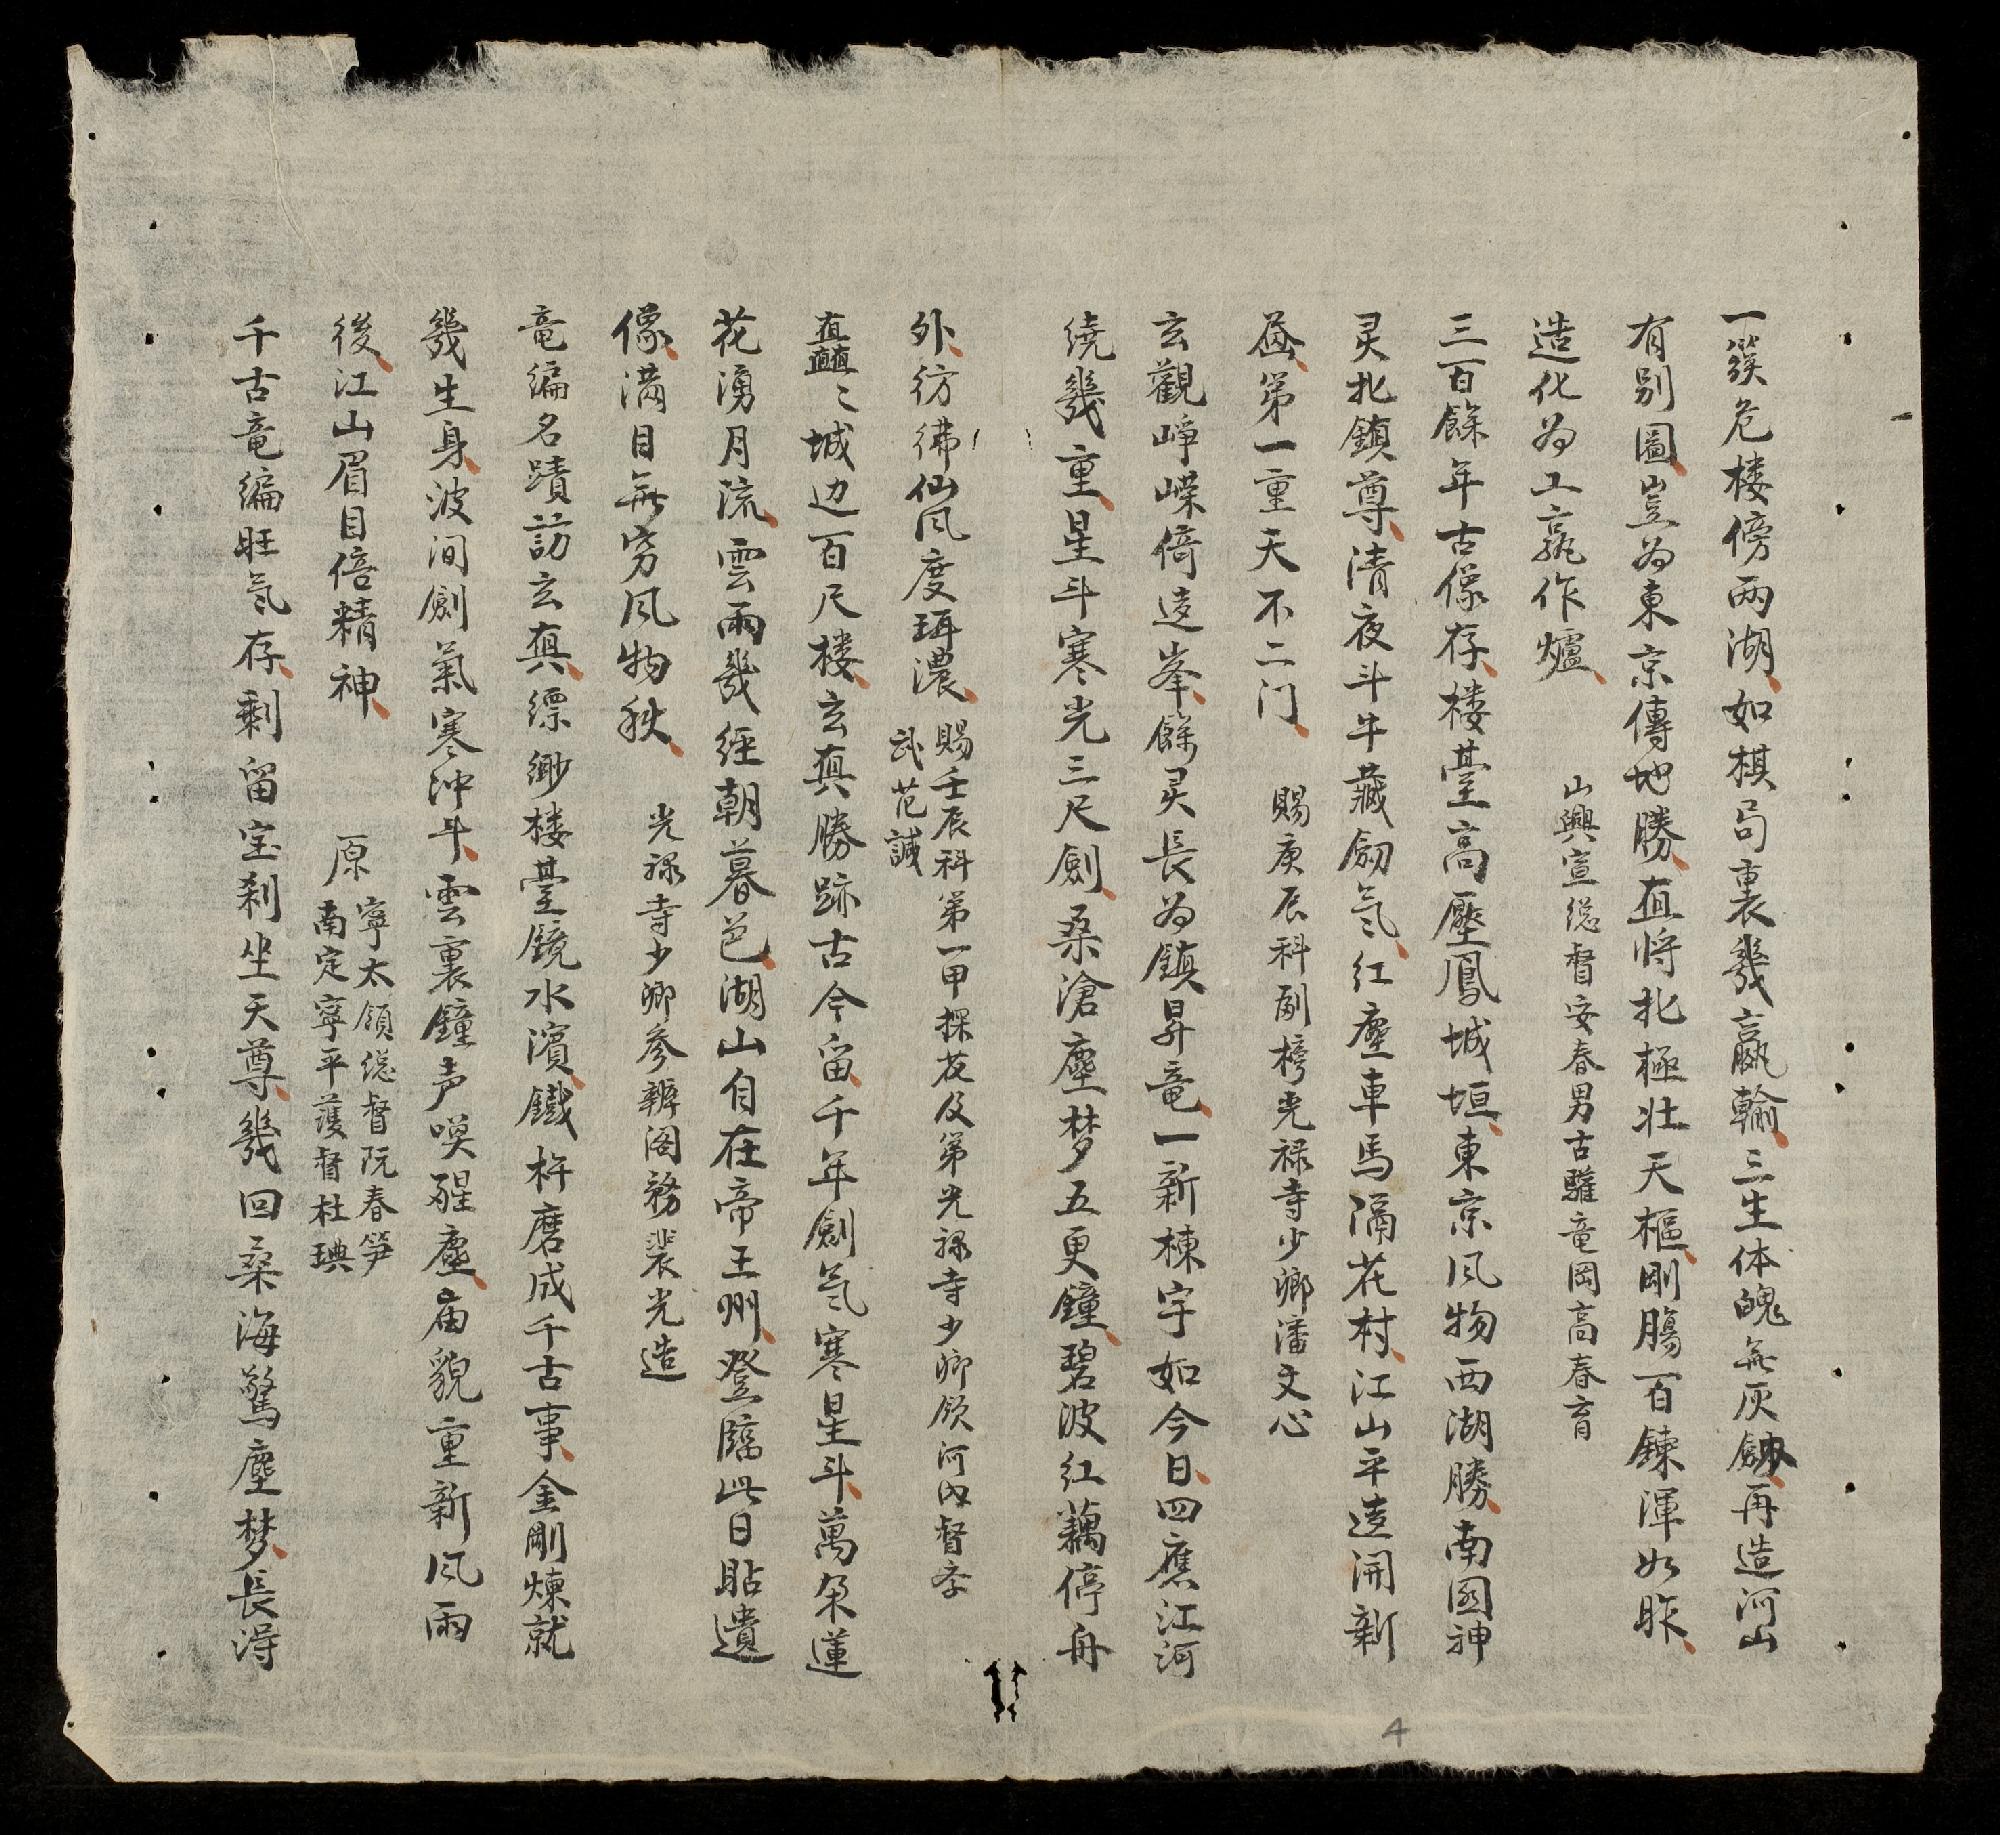 一簇危楼傍两湖如棋局裏幾贏輸三生体魄無灰劒再造河山
有别圖豈为東京傳地勝直将北極壮天樞剛腸百鍊渾如昨
造化为工孰作爐
山興宣総督安春男古驩竜岡高春育
三百餘年古像存楼臺高壓鳳城垣東京风物西湖勝南國神
灵北鎮尊清夜斗牛藏劒氣红塵車馬隔花村江山平逺開新
第一重天不二门
賜庚辰科副榜光禄寺少卿潘文心
玄觀崢嶸倚逺峯餘灵長为鎮昇竜一新棟宇如今日四應江河
繞幾重星斗寒光三尺劍桑滄塵梦五更鐘碧波红藕停舟
外彷彿仙风度珥濃
賜壬辰科第一甲探花及第光禄寺少卿領河内督孝
武范諴
矗〻城边百尺楼玄真勝跡古今留千年劍氣寒星斗萬朶蓮
花湧月流雲雨幾經朝暮色湖山自在帝王州登臨此日貼遺
像满目無穷风物秋
光禄寺少卿参辦阁務裴光造
竜編名蹟訪玄真縹緲楼臺鏡水濱鐵杵磨成千古事金剛煉就
幾生身波间劍氣寒沖斗雲裏鐘声唤醒塵庙貌重新风雨
後江山眉目倍精神
原
寧太領総督阮春笋
南定寧平護督杜琠
千古竜編旺氣存剩留宝刹坐天尊幾回桑海驚塵梦長淂